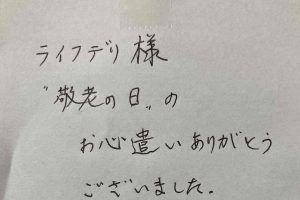 ライフデリ様
"敬老の日"の
お心遣いありがとう
ございました。